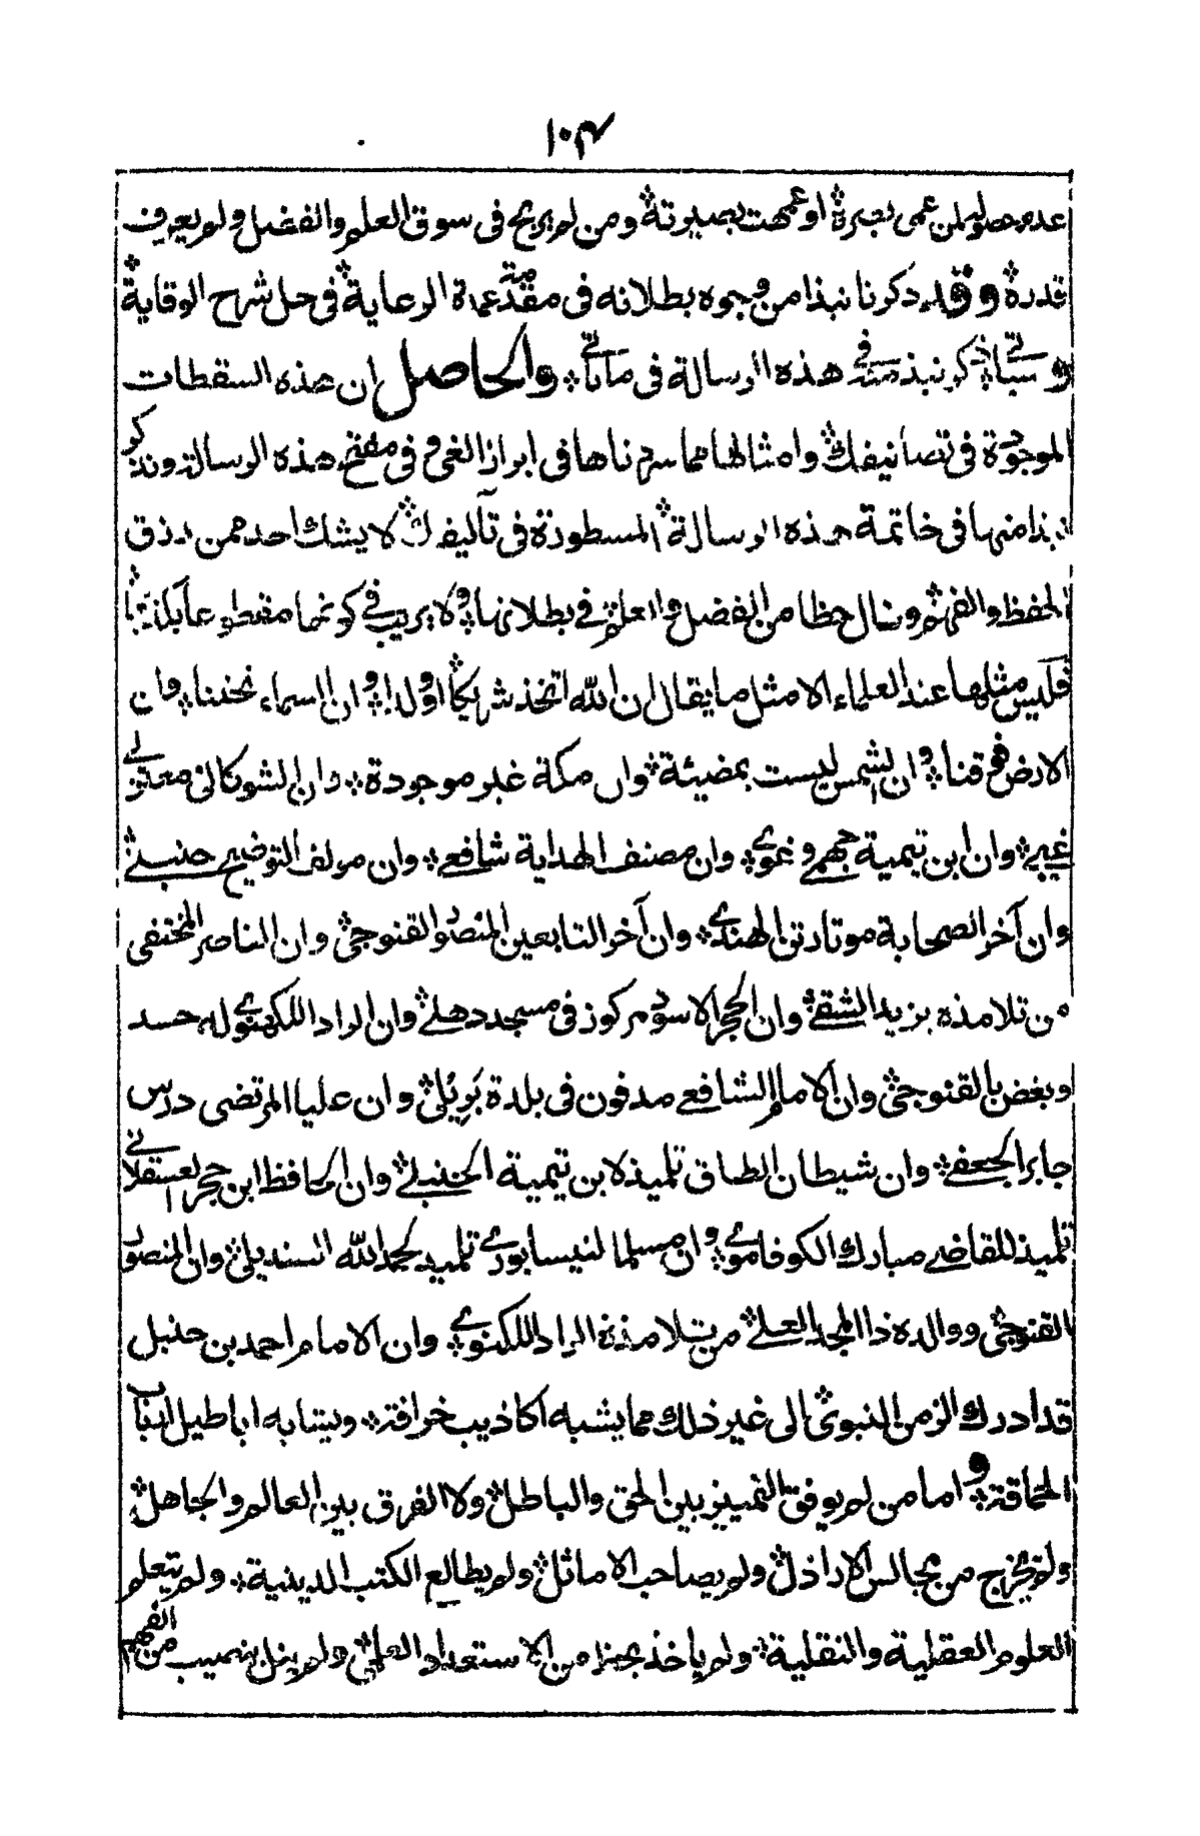 ١٠٤
لمن عمى بصره او عمهت بصيرته ومن لم يربح فى سوق العلم والفضل ولم يعرف
قدره وقد ذكرنا نبذا من وجوه بطلانه فى مقدمة عمدة الرعاية فى حل شرح الوقاية
وسياتى ذكر نبذ منه فى هذه الرسالة فى ماياتى والحاصل ان هذه السقطات
الموجودة فى تصانيفك وامثالها مما سردناها فى ابراز الغى وفى مفتح هذه الرسالة ونذكر
نبذا منها فى خاتمة هذه الرسالة المسطورة فى تآليفك لا يشك احد ممن رزق
الحفظ والفهم ونال حظا من الفضل والعلم فى بطلانها ولا يريب فى كونها مقطوعا بكذبها
فليس مثلها عند العلماء الا مثل ما يقال ان الله اتخذ شريكا او ولدا وان السماء تحتنا وان
الارض فوقنا وان الشمس ليست بمضيئة وان مكة غير موجودة وان الشوكانى معتزلى
غبى وان ابن تيمية جهمى وغوى وان مصنف الهداية شافعى وان مولف التوضيح حنبلى
وان آخر الصحابة موتا رتن الهندى وان آخر التابعين المنصور القنوجى وان الناصر المختفى
من تلامذه يزيد الشقى وان الحجر الاسود مركوز فى مسجد دهلى وان الراد اللكهنوى له حسد
وبغض بالقنوجى وان الامام الشافعى مدفون فى بلدة بَرِيْلى وان عليا المرتضى درس
جابر الجعفى وان شيطان الطاق تلميذ لابن تيمية الحنبلى وان الحافظ ابن حجر العسقلانى
تلميذ للقاضى مبارك الكوفاموى وان مسلما النيسابورى تلميذ لحمد الله السنديلى وان المنصور
القنوجى ووالده ذا المجد العلى من تلامذة الراد اللكنوى وان الامام احمد بن حنبل
قد ادرك الزمن النبوى الى غير ذلك مما يشبه اكاذيب خرافة ويشابه اباطيل ارباب
الحماقة واما من لم يوفق التمييز بين الحق والباطل ولا الفرق بين العالم والجاهل
ولم يخرج من مجالس الاراذل ولم يصاحب الاماثل ولم يطالع الكتب الدينية ولم يتعلم
العلوم العقلية والنقلية ولم ياخذ بحظ من الاستعداد العلمى ولم ينل بنصيب من الفهم